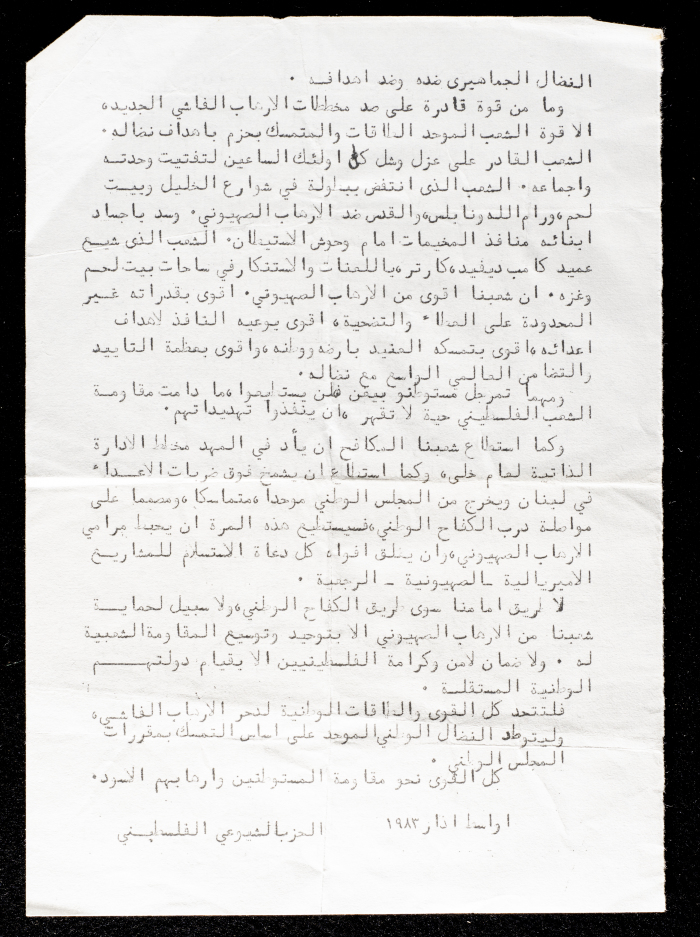 النضال الجماهيرى ضده وضد اهدافه .
وما من قوة قادرة على صد مخططات الارهاب الفاشي الجديد،
الا قوة الشعب الموحد الطاقات والمتمسك بحزم باهداف نضاله.
الشعب القادر على عزل وشل كل اولئك الساعين لتفتيت وحدته
واجماعه. الشعب الذى انتفض ببطولة في شوارع الخليل وبيت
لحم،ورام الله ونابلس،والقدس ضد الارهاب الصهيوني. وسد باجساد
ابنائه منافذ المخيمات امام وحوش الاستيطان. الشعب الذى شيع
عميد كامب ديفيد،كارتر،باللعنات والاستنكار في ساحات بيت لحم
وغزه. ان شعبنا اقوى من الارهاب الصهيوني. اقوى بقدراته غير
المحدودة على العطاء والتضحية، اقوى بوعيه النافذ لاهداف
اعدائه،اقوى بتمسكه العنيد بارضه ووطنه،واقوى بعظمة التاييد
والتضامن العالمي الواسع مع نضاله.
ومهما تمرجل مستوطنو بيغن فلن يستطيعوا،ما دامت مقاومة
الشعب الفلسطيني حية لا تقهر ،ان ينفذوا تهديداتهم.
وكما استطاع شعبنا المكافح ان يأد في المهد مخطط الادارة
الذاتية لعام خلى، وكما استطاع ان يشمخ فوق ضربات الاعداء
في لبنان ويخرج من المجلس الوطني موحدا،متماسكا،ومصمما على
مواصلة درب الكفاح الوطني،فسيستطيع هذه المرة ان يحبط مرامي
الارهاب الصهيوني،وان يغلق افواه كل دعاة الاستسلام للمشاريع
الامبريالية ـ الصهيونية ـ الرجعية .
لا طريق امامنا سوى طريق الكفاح الوطني،ولا سبيل لحماية
شعبنا من الارهاب الصهيوني الا بتوحيد وتوسيع المقاومة الشعبية
له . ولا ضمان لامن وكرامة الفلسطينيين الا بقيام دولتهم
الوطنية المستقلة .
فلتتحد كل القوى والطاقات الوطنية لدحر الارهاب الفاشي،
وليتوطد النضال الوطني الموحد على اساس التمسك بمقررات
المجلس الوطني .
كل القوى نحو مقاومة المستوطنين وارهابهم الاسود.
اواسط اذار ١٩٨٣
الحزب الشيوعي الفلسطيني